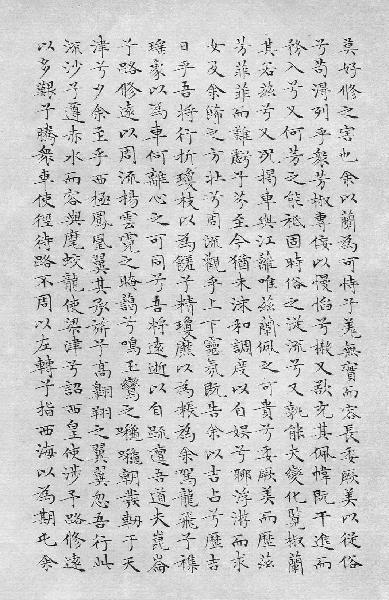 莫好修之害也余以蘭為可恃兮羌無實而容長委厥美以從俗
兮苟得列乎衆芳椒專佞以慢慆兮樧又欲充其佩幃既干進而
務入兮又何芳之能祗固時俗之從流兮又孰能無變化覽椒蘭
其若茲兮又況揭車與江離唯茲蘭佩之可貴兮委厥美而歷茲
芳菲菲而難虧兮芬至今猶未沬和調度以自娛兮聊浮游而求
女及余飾之方壯兮周流觀乎上下靈氛既告余以吉占兮歷吉
日乎吾將行折瓊枝以為饈兮精瓊爢以為粻為余駕龍飛兮襍
瑤象以為車何離心之可同兮吾將遠逝以自疏邅吾道夫崑崙
兮路修遠以周流揚雲霓之晻藹兮鳴玉鸞之啾啾朝發軔于天
津兮夕余至乎西極鳳凰翼其承旂兮高翱翔之翼翼忽吾行此
流沙兮遵赤水而容與麾蛟龍使梁津兮詔西皇使涉予路修遠
以多艱兮騰衆車使徑待路不周以左轉兮指西海以為期屯余